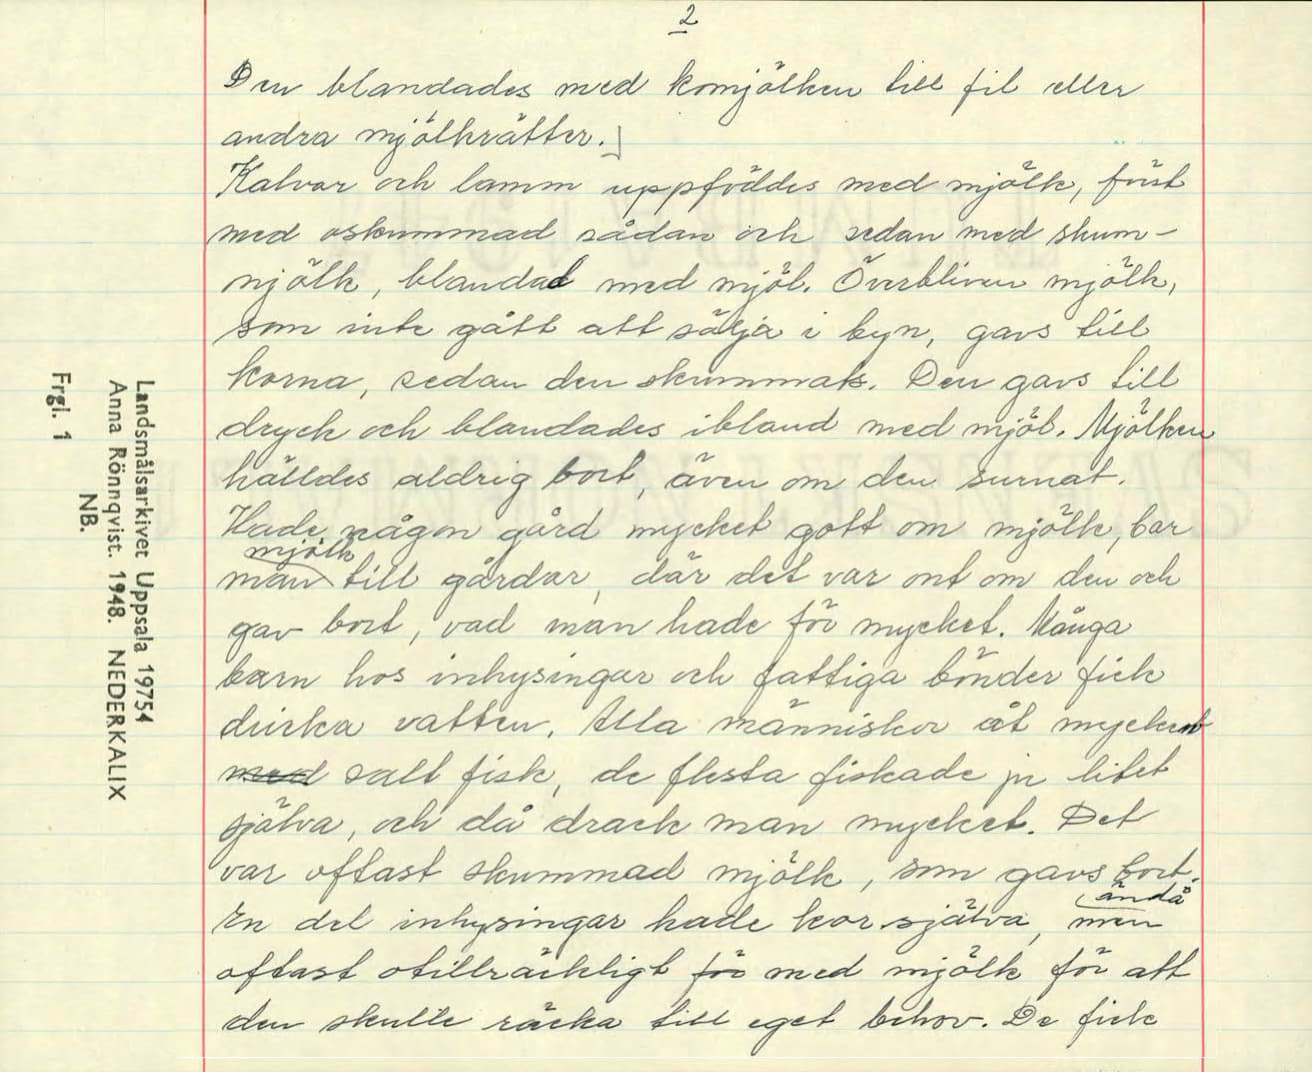 2
Den blandades med komjölken till fil eller
andra mjölkrätter.
Kalvar och lamm uppföddes med mjölk, först
med oskummad sådan och sedan med skum-
mjölk, blandad med mjöl. Överbliven mjölk,
som inte gått att sälja i byn, gavs till
korna, sedan den skummats. Den gavs till
dryck och blandades ibland med mjöl. Mjölken
hälldes aldrig bort, även om den surnat.
Hade någon gård mycket gott om mjölk, bar
man mjölk till gårdar, där det var ont om den och
gav bort, vad man hade för mycket. Många
barn hos inhysingar och fattiga bönder fick
dricka vatten. Alla människor åt mycket
med salt fisk, de flesta fiskade ju litet
själva, och då drack man mycket. Det
var oftast skummad mjölk, som gavs bort.
En del inhysingar hade kor själva, men ändå
oftast otillräckligt för med mjölk för att
den skulle räcka till eget behov. De fick
Landsmålsarkivet Uppsala 19754
Anna Rönnqvist. 1948. NEDERKALIX
NB.
Frgl. 1